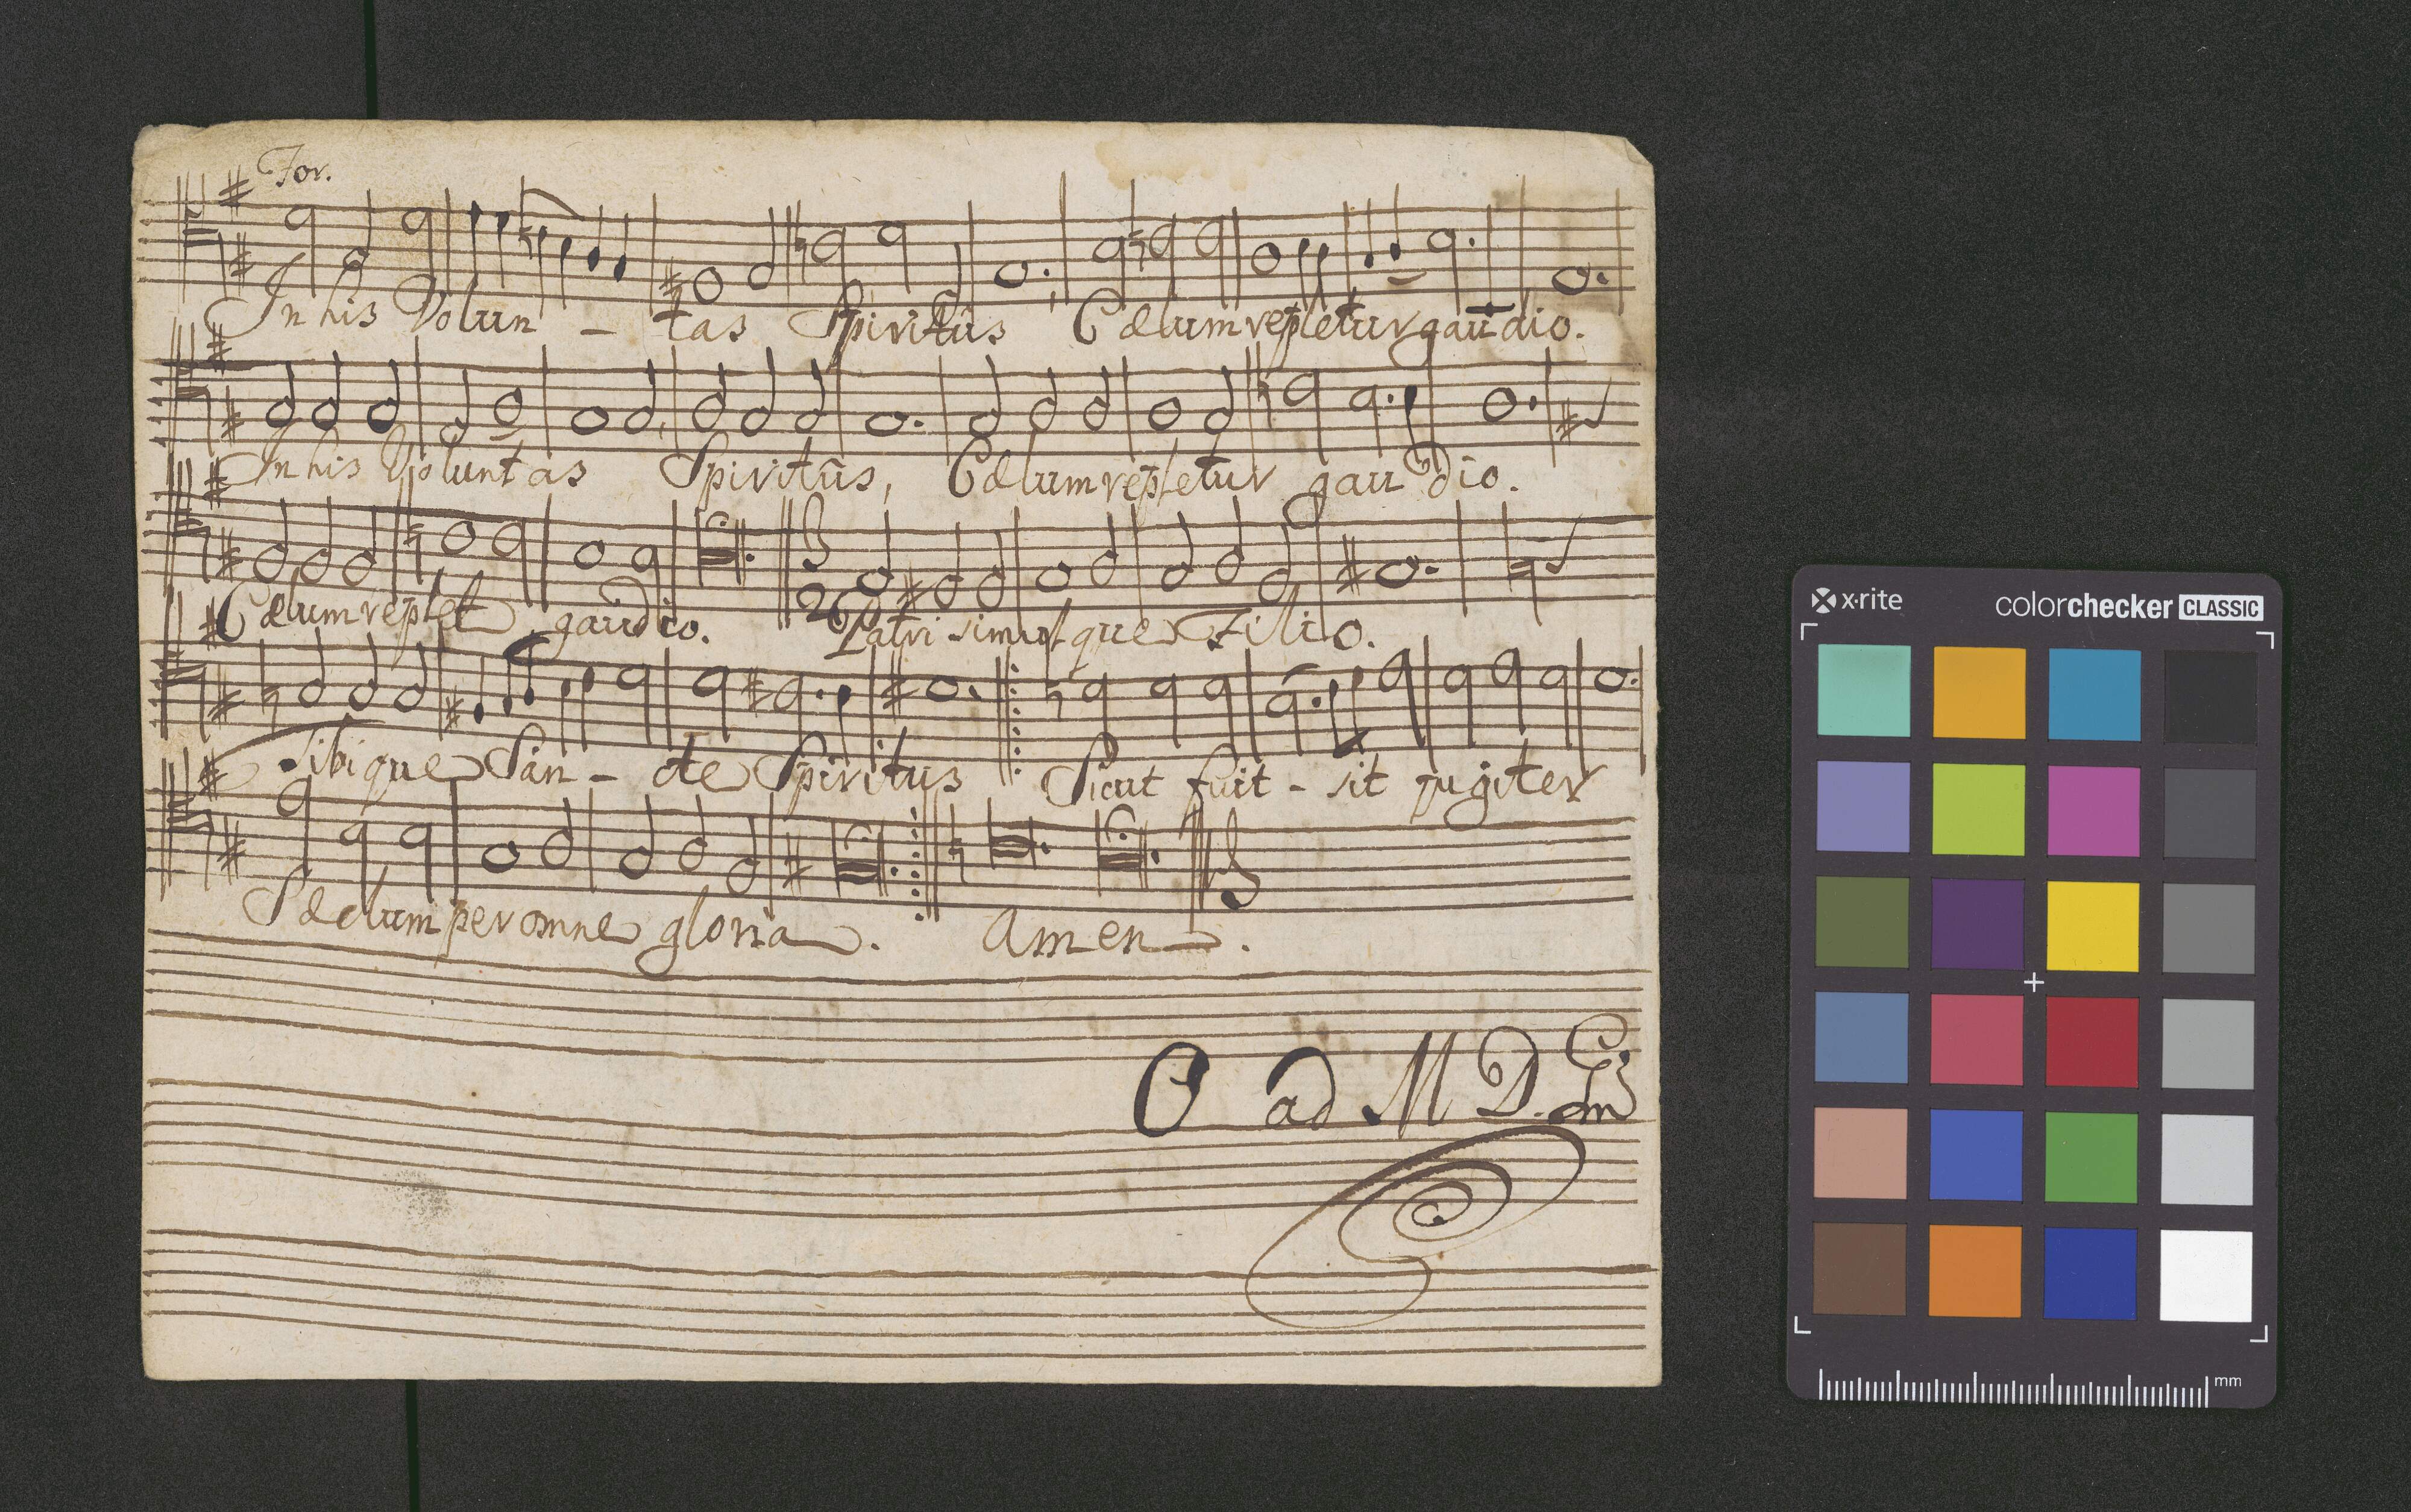 For.
In his Volun - tas Spiritus Cælum repletur gaudio.
In his Voluntas Spiritus, Cælum repletur gaudio.
Cælum replet gaudio. 2 Patri simulque Filio.
Sibique San - cte Spiritus Sicut fuit - sit jugiter
Sæclum per omne gloria. Amen.
O ad M D G
x-rite colorchecker CLASSIC
mm